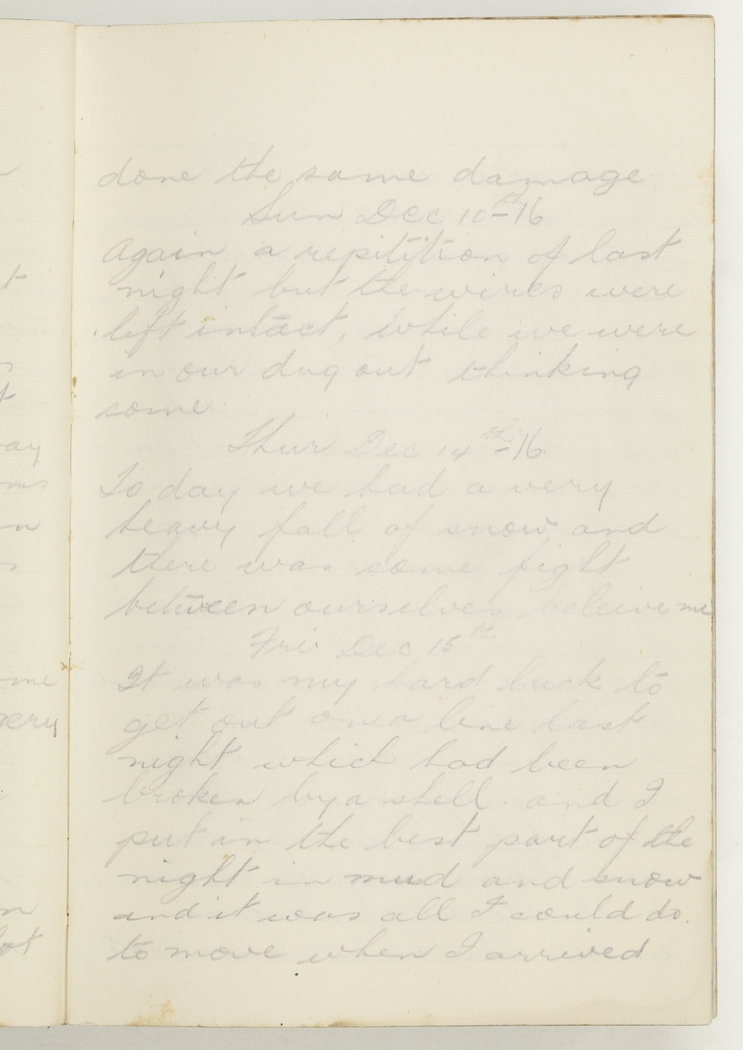 done the same damage
Sun Dec 10th-16
Again a repitition of last
night but the wires were
left intact, while we were
in our dug out thinking
some.
Thur Dec 14th-16
To day we had a very
heavy fall of snow and
there was some fight
between ourselves beleive me
Fri Dec 15th
It was my hard luck to
get out on a line last
night which had been
broken by a shell. and I
put in the best part of the
night in mud and snow
and it was all I could do.
to move when I arrived